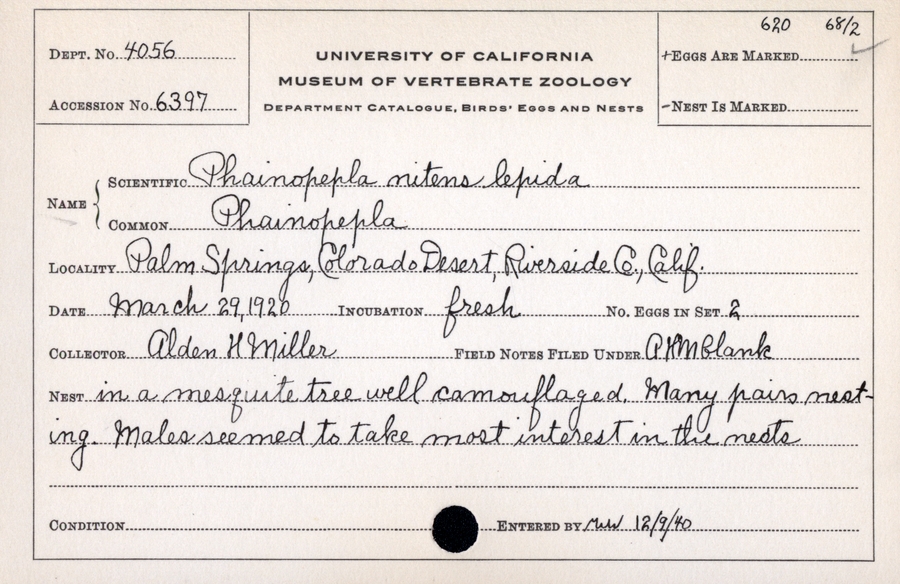 620 68/2
DEPT. No. 4056
UNIVERSITY OF CALIFORNIA
+EGGS ARE MARKED
MUSEUM OF VERTEBRATE ZOOLOGY
ACCESSION No. 6397
DEPARTMENT CATALOGUE, BIRDS' EGGS AND NESTS
-NEST IS MARKED
NAME
SCIENTIFIC Phainopepla nitens lepida
COMMON Phainopepla
LOCALITY Palm Springs, Colorado Desert, Riverside Co., Calif.
DATE March 29, 1920 INCUBATION fresh No. EGGS IN SET 2
COLLECTOR Alden H Miller FIELD NOTES FILED UNDER AHM Blank
NEST in a mesquite tree well camouflaged. Many pairs nest-
ing. Males seemed to take most interest in the nests
CONDITION ENTERED BY 12/9/40